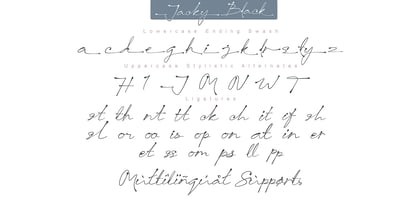 Jacky Black
Lowercase Ending Swash
a c d e g h i j k b z l y z
Uppercase Stylistic Alternates
H I J M N W T
Ligatures
st th nt tt ck ch it of sh
sl or oo is op on at in er
et ss om ps ll pp
Multilingual Supports